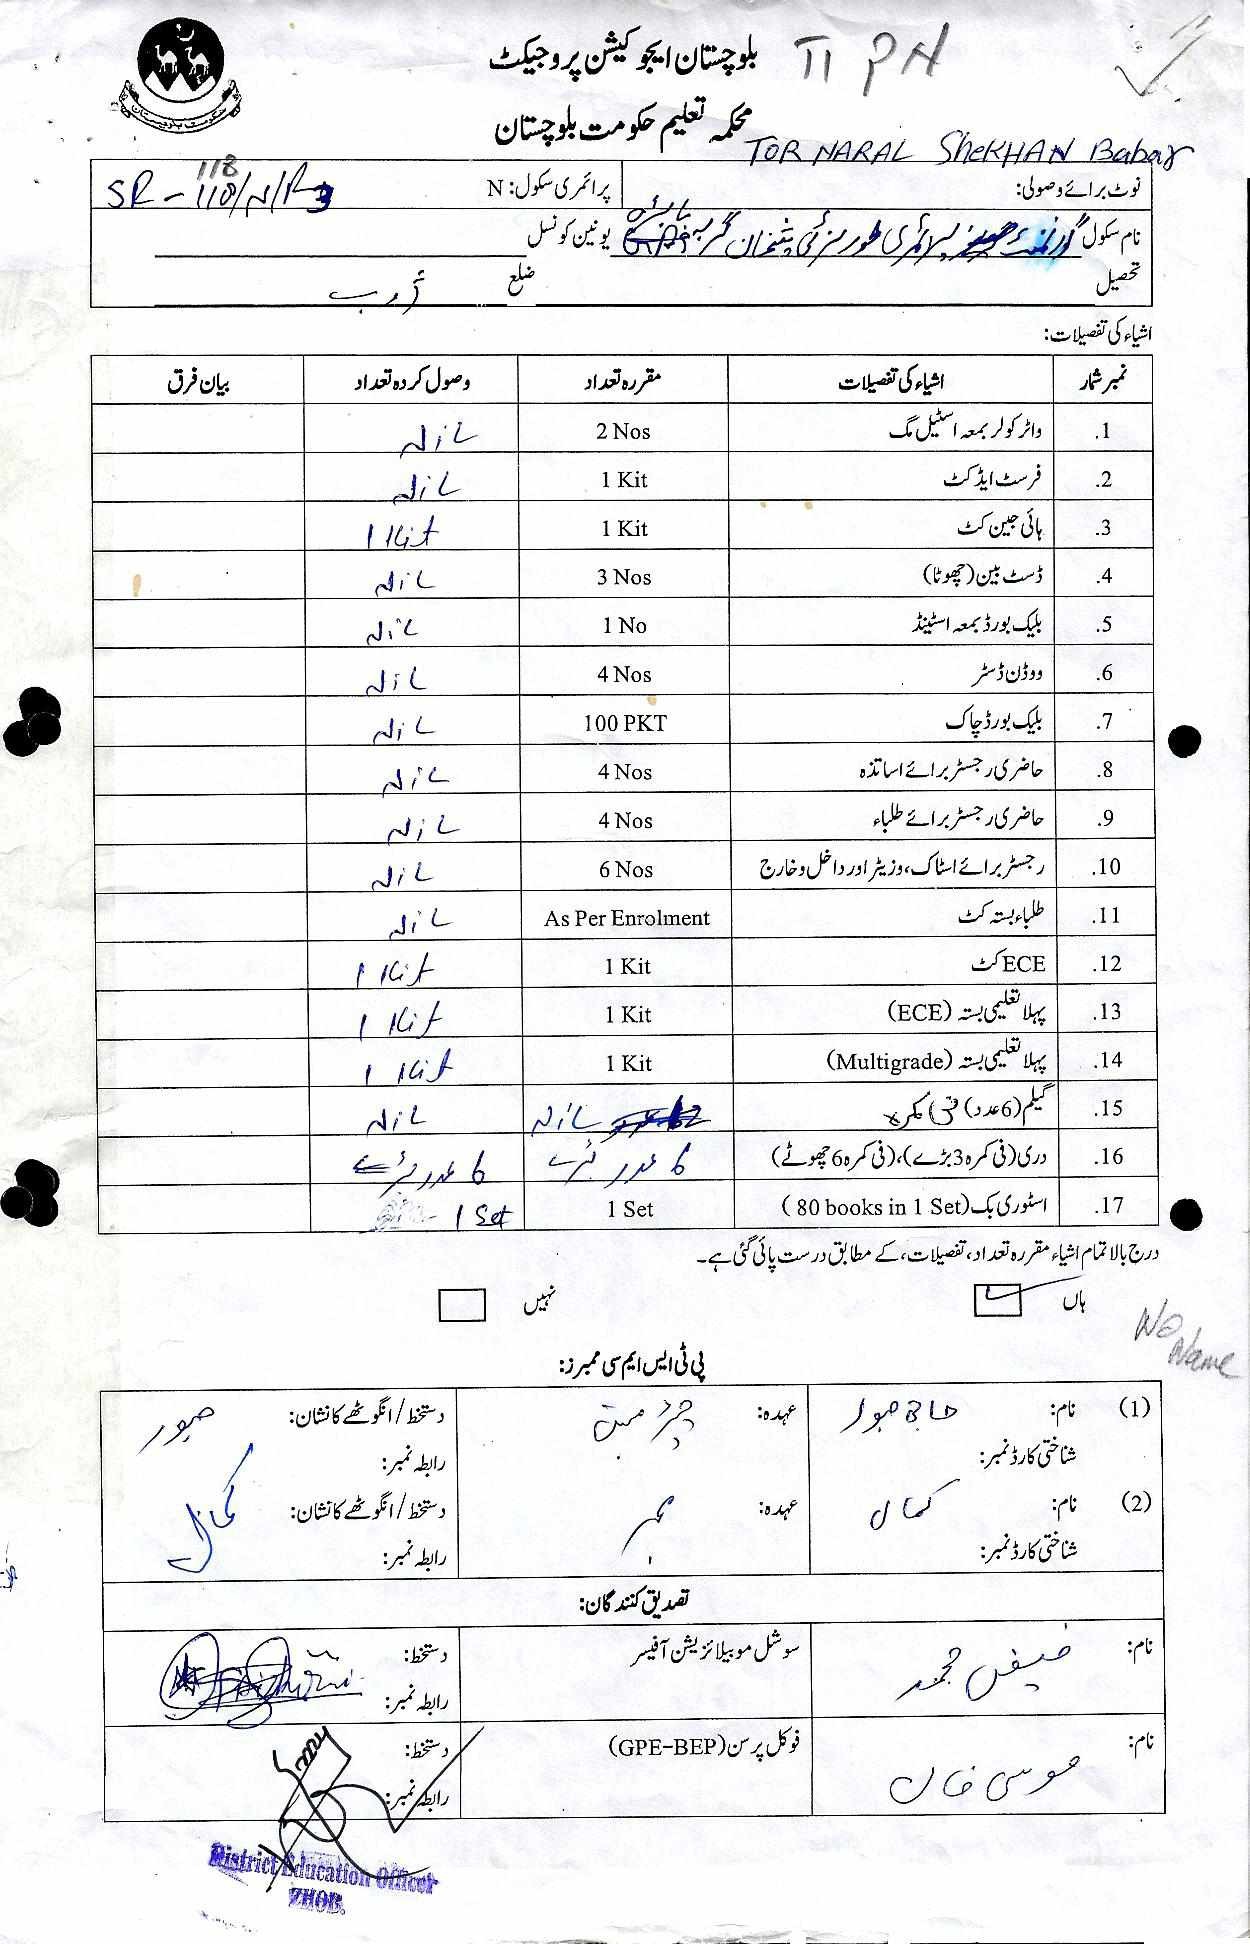 بلوچستان ایجوکیشن پروجیکٹ
محکمہ تعلیم حکومت بلوچستان
TOR NARAL SheKHAN Babar
نوٹ برائے وصولی: پرائمری سکول: N SR-
118
نام سکول گورنمنٹ پرائمری یونین کونسل
تحصیل ضلع ژوب
اشیاء کی تفصیلات:
نمبر شمار اشیاء کی تفصیلات مقررہ تعداد وصول کردہ تعداد بیان فرق
1. واٹر کولر بمعہ اسٹیل مگ 2 Nos Nil
2. فرسٹ ایڈ کٹ 1 Kit Nil
3. ہائی جین کٹ 1 Kit 1 Kit
4. ڈسٹ بین (چھوٹا) 3 Nos Nil
5. بلیک بورڈ بمعہ اسٹینڈ 1 No Nil
6. ووڈن ڈسٹر 4 Nos Nil
7. بلیک بورڈ چاک 100 PKT Nil
8. حاضری رجسٹر برائے اساتذہ 4 Nos Nil
9. حاضری رجسٹر برائے طلباء 4 Nos Nil
10. رجسٹر برائے اسٹاک، وزیٹر اور داخل و خارج 6 Nos Nil
11. طلباء بستہ کٹ As Per Enrolment Nil
12. ECE کٹ 1 Kit 1 Kit
13. پہلا تعلیمی بستہ (ECE) 1 Kit 1 Kit
14. پہلا تعلیمی بستہ (Multigrade) 1 Kit 1 Kit
15. گیلم (6 عدد) فی کمرہ Nil Nil
16. دری (فی کمرہ 3 بڑے)، (فی کمرہ 6 چھوٹے) 6 عدد بڑے 6 عدد بڑے
17. اسٹوری بک (80 books in 1 Set) 1 Set 1 Set
درج بالا تمام اشیاء مقررہ تعداد، تفصیلات، کے مطابق درست پائی گئی ہے۔
ہاں نہیں
No Name
پی ٹی ایس ایم سی ممبرز:
(1) نام: عہدہ: چیئرمین دستخط/انگوٹھے کا نشان:
شناختی کارڈ نمبر: رابطہ نمبر:
(2) نام: کمال عہدہ: ممبر دستخط/انگوٹھے کا نشان: کمال
شناختی کارڈ نمبر: رابطہ نمبر:
تصدیق کنندگان:
نام: فیض محمد سوشل موبیلائزیشن آفیسر دستخط:
رابطہ نمبر:
نام: موسی خان فوکل پرسن (GPE-BEP) دستخط:
رابطہ نمبر:
District Education Officer
ZHOB.